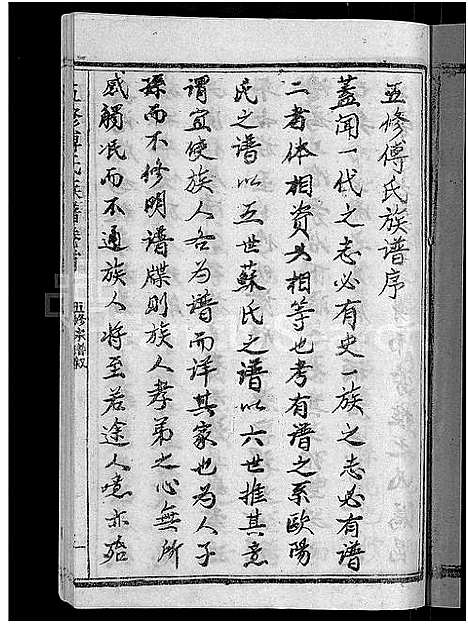 五修傅氏族谱序
蓋闻一代之志必有史一族之志必有谱
二者体相资義相等也考有谱之系歐陽
氏之谱以五世蘇氏之谱以六世推其意
谓宜使族人各为谱而详其家也为人子
孫而不修明谱牒则族人孝弟之心無所
感觸泯而不通族人将至若途人噫亦殆
五修傅氏族譜卷首
五修宗譜叙